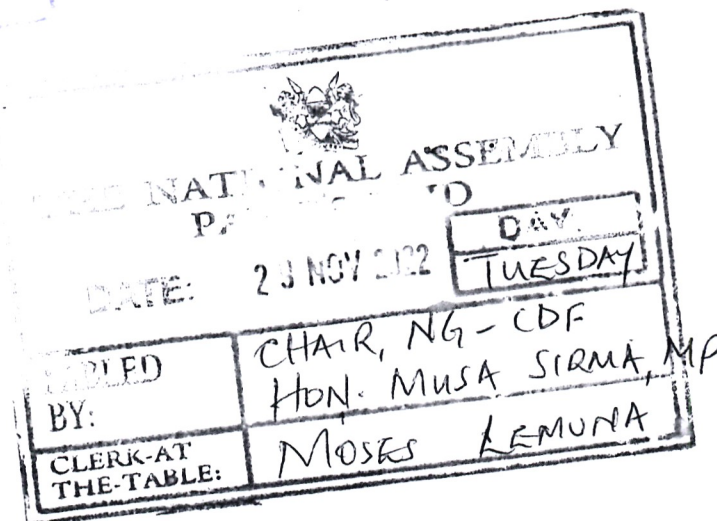 THE NATIONAL ASSEMBLY
DATE: NOV 2022
DAY
TUESDAY
TABLED
BY:
CHAIR, NG-CDF
HON. MUSA SIRMA, MP
CLERK-AT
THE-TABLE:
MOSES LEMUNA